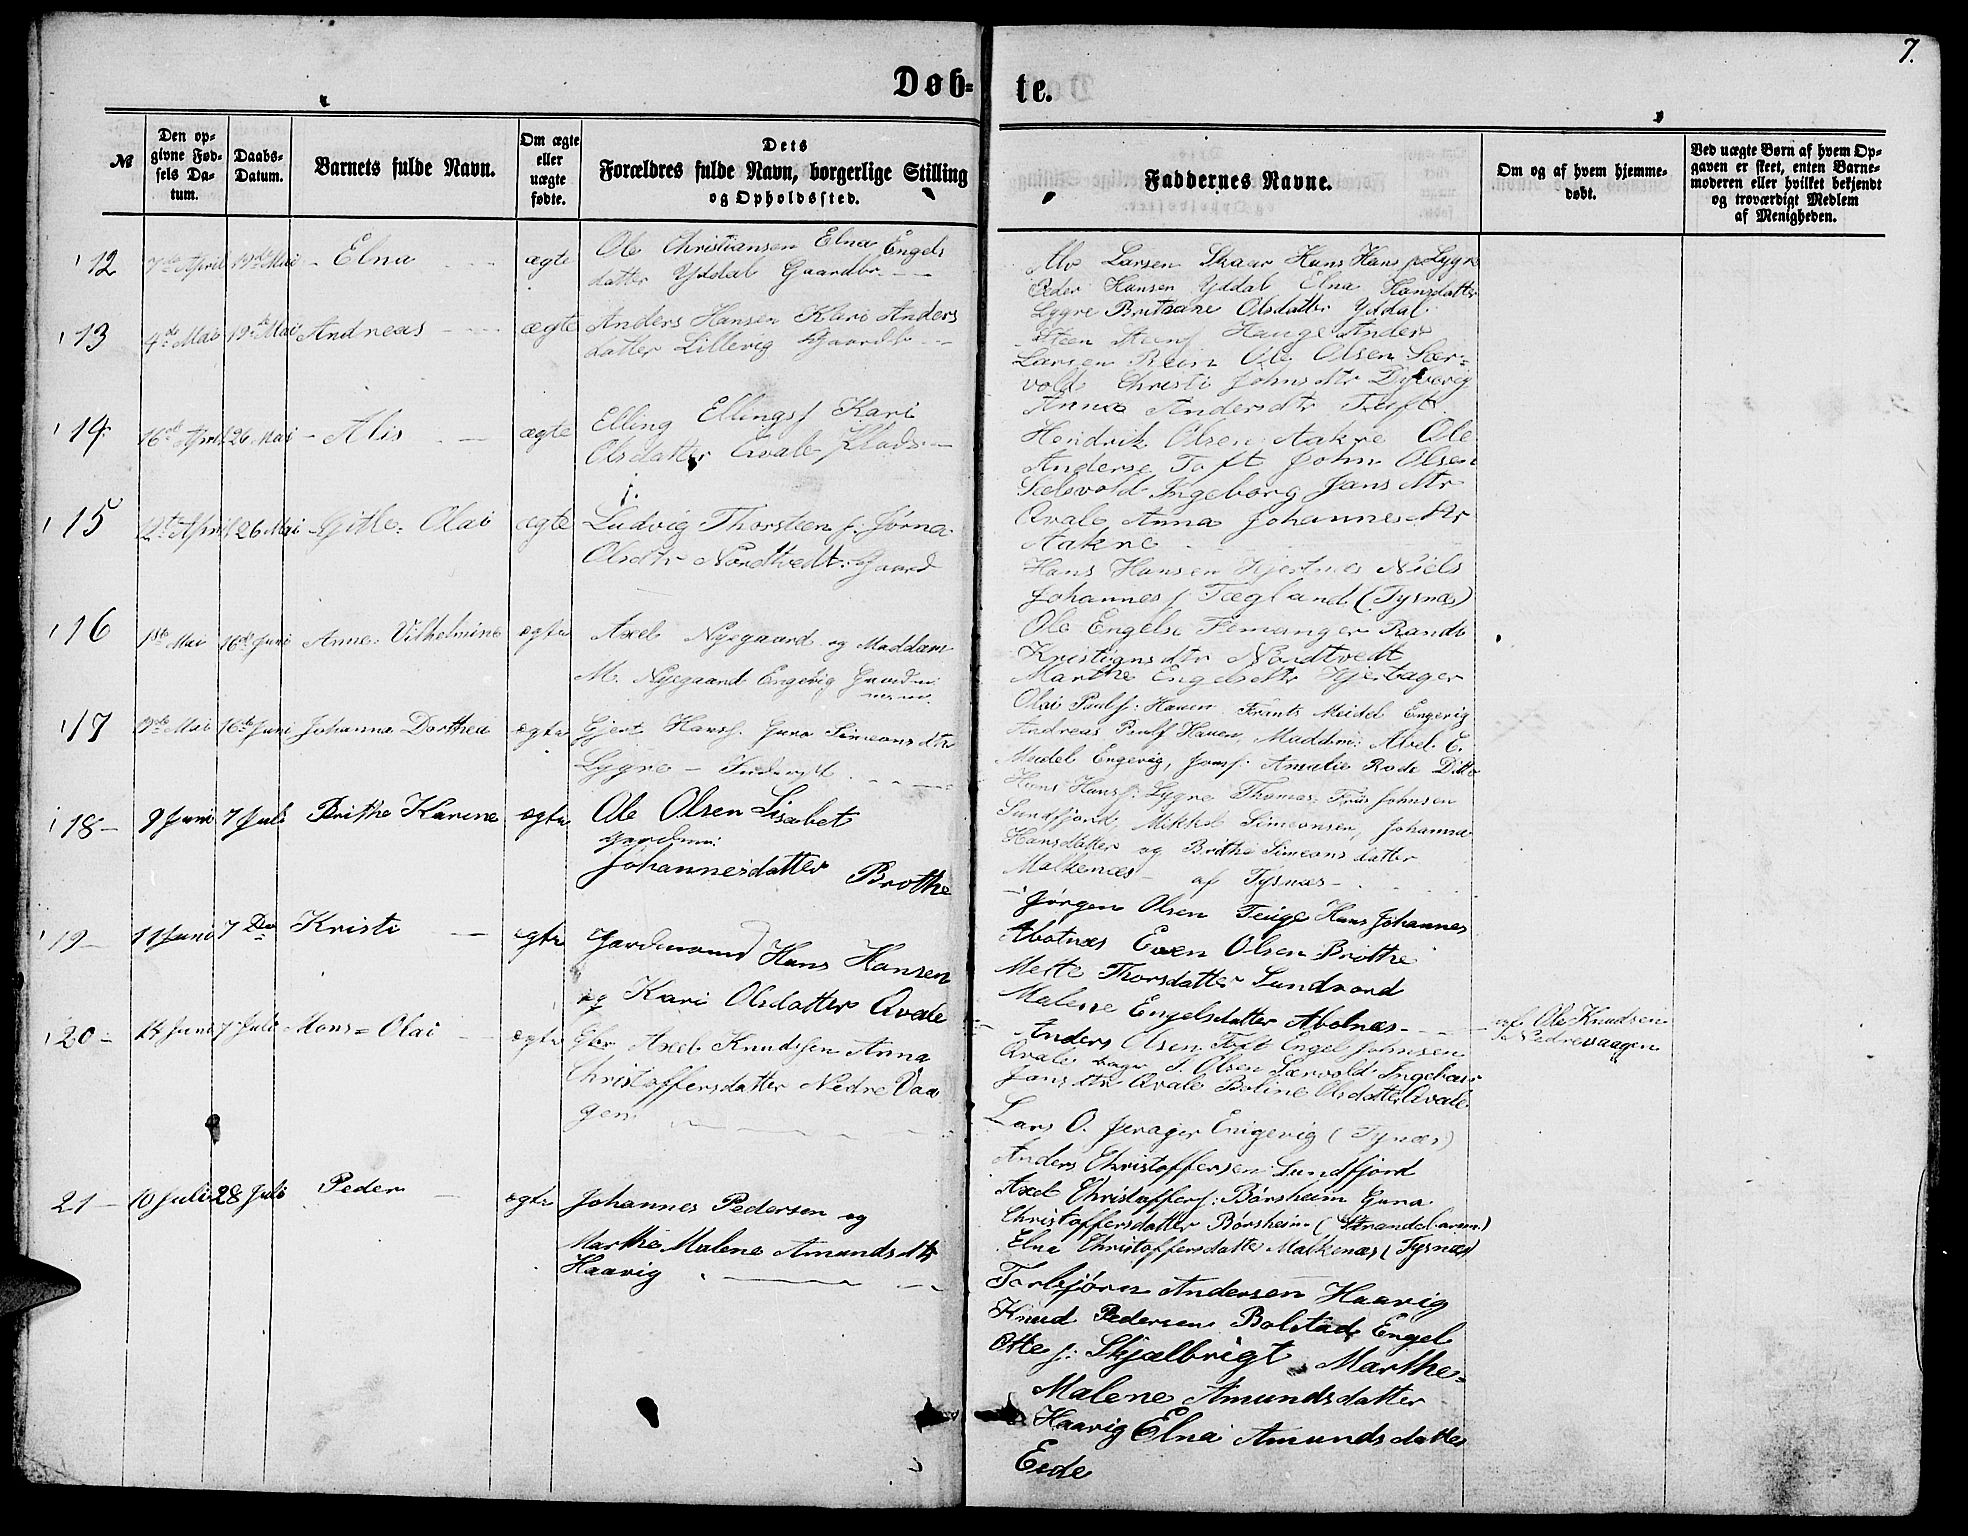 7.
Døb-
te.
№
Den op-
givne Fød-
sels Da-
tum.
Daabs-
Datum.
Barnets fulde Navn.
Om ægte
eller
uægte
fødte.
Dets
Forældres fulde Navn, borgerlige Stilling
og Opholdssted.
Faddernes Navne.
Om og af hvem hjemme-
døbt.
Ved uægte Børn af hvem Op-
gaven er skeet, enten Barne-
moderen eller hvilket bekjendt
og troværdigt Medlem
af Menigheden.
12 7de April 19de Mai - Elna ægte
Ole Christiansen Elna Engels
datter Yddal Gaardbr.
Larsen Skaar Hans Hans f Lygre
Peder Hansen Yddal Elna Hansdatter
Lygre Olsdatter Yddal
13 4de Mai 19de Mai Andreas ægte
Anders Hansen Kari Anders
datter Lillevig Gaardbr
Steen Hauge Anders
Larsen Ole Olsen Sær-
vold Christi Johnsdtr Dybevig
Anna Andersdtr Tuft
14 16de April 26 Mai - Alis ægte
Elling Ellings f Kari
Olsdatter Qvale Plads
Hendrik Olsen Aakre Ole
Anderse Toft John Olsen
Ingeborg Jansdtr
Qvale Anna Johannesdtr
Aakre
15 April 26 Mai - Olai ægte
Ludvig Thorsteen f: Jørna
Olsdtr Nordtvedt: Gaard
Hans Hansen Niels
Johannes f Tægland (Tysnæs)
Ole Engelse Femanger Randi
Kristiansdtr Nordtvedt
Marthe Engelsdtr Hjertager
16 1ste Mai 16de Juni Anne: Vilhelmine ægte
Axel Nyegaard og Maddam
M. Nyegaard Engevig
Olai Paulsf: Hauen Frants Meidel Engevig
Andreas Paulsf Hauen, Maddam: Axel E.
Meidel Engevig, Jomf: Amalie Rode Ditto
17 19de Mai 16de Juni Johanna Dorthea ægte
Gjert Hansf. Guro Simeonsdtr
Lygre - Inderst
Hans Hansf: Lygre Thomas Friis Johnsen
Sundfjord Mikkel Simeonsen, Johanna
Hansdatter og Brithe Simeonsdatter
Malkenæs - af Tysnæs -
18 - 9 Juni 7 Juli Brithe Karine ægte
Ole Olsen Lisabet
Johannesdatter Brothe
Jørgen Olsen Teige Hans Johannes
Abotnæs Even Olsen Brothe
Mette Thorsdatter Sundvord
Malene Engelsdatter Abotnæs
19 - 11 Juni 7 Do Kristi ægte
Gardmand Hans Hansen
og Kari Olsdatter Qvale
Anders Olsen Toft Engel Johnsen
Qvale Olsen Særvold Ingeborg
Jansdtr Qvale Boline Olsdatter Qvale
20 - 14 Juni 7 Juli Mons = Olai ægte
Axel Knudssen Anna
Christoffersdatter Nedre Vaa
gen
Lars O. Engevig (Tysnæs)
Anders Christoffersen Sundfjord
Axel Christoffersf: Børsheim Guna
Christoffersdatter Børsheim (Strandebarm)
Elna Christoffersdatter Malkenæs (Tysnæs)
af Ole Knudsen
Nedrevaagen
21 - 10 Juli 28 Juli Peder ægte
Johannes Pedersen og
Marthe Malene Amundsdtr
Haavig
Torbjørn Andersen Haavig
Knud Pedersen Bolstad Engel
Otte f: Skjælbrigt Marthe-
Malene Amundsdatter
Haavig Elna Amundsdatter
Eide